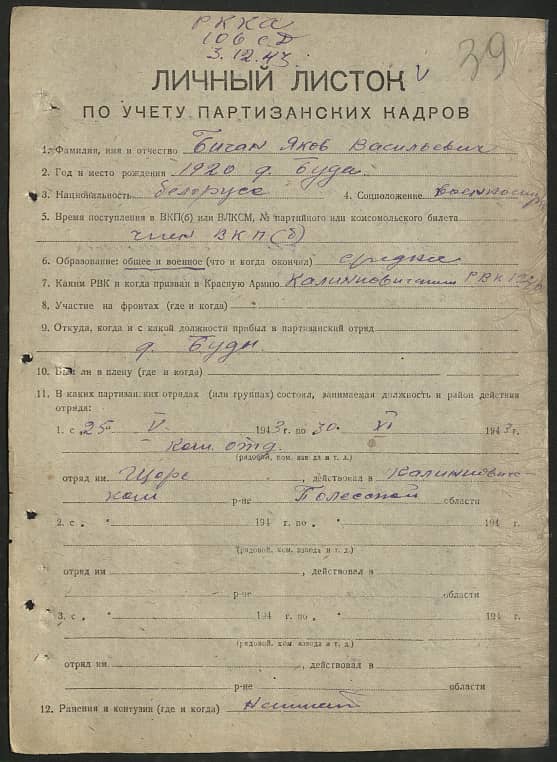 РККА
106 с.д
3.12.43.
39
ЛИЧНЫЙ ЛИСТОК
ПО УЧЕТУ ПАРТИЗАНСКИХ КАДРОВ
1. Фамилия, имя и отчество Бичан Яков Васильевич
2. Год и место рождения 1920 д. Буда
3. Национальность белорусс 4. Соцположение
5. Время поступления в ВКП(б) или ВЛКСМ, № партийного или комсомольского билета
член ВКП(б)
6. Образование: общее и военное (что и когда окончил) среднее
7. Каким РВК и когда призван в Красную Армию Калинковичским РВК
8. Участие на фронтах (где и когда)
9. Откуда, когда и с какой должности прибыл в партизанский отряд
д. Буды
10. Был ли в плену (где и когда)
11. В каких партизанских отрядах (или группах) состоял, занимаемая должность и район действия
отряда:
1. с 25 V 1943 г. по 30 XI 1943 г.
Ком. отд.
(рядовой, ком. взвода и т. д.)
отряд им Щорс, действовал в Калинкович-
ком р-не Полесской области
2. с " " 194 г. по " 194 г.
(рядовой, ком. взвода и т. д.)
отряд им , действовал в
р-не области
3. с " " 194 г. по " 194 г.
(рядовой, ком. взвода и т. д.)
отряд им , действовал в
р-не области
12. Ранения и контузии (где и когда)